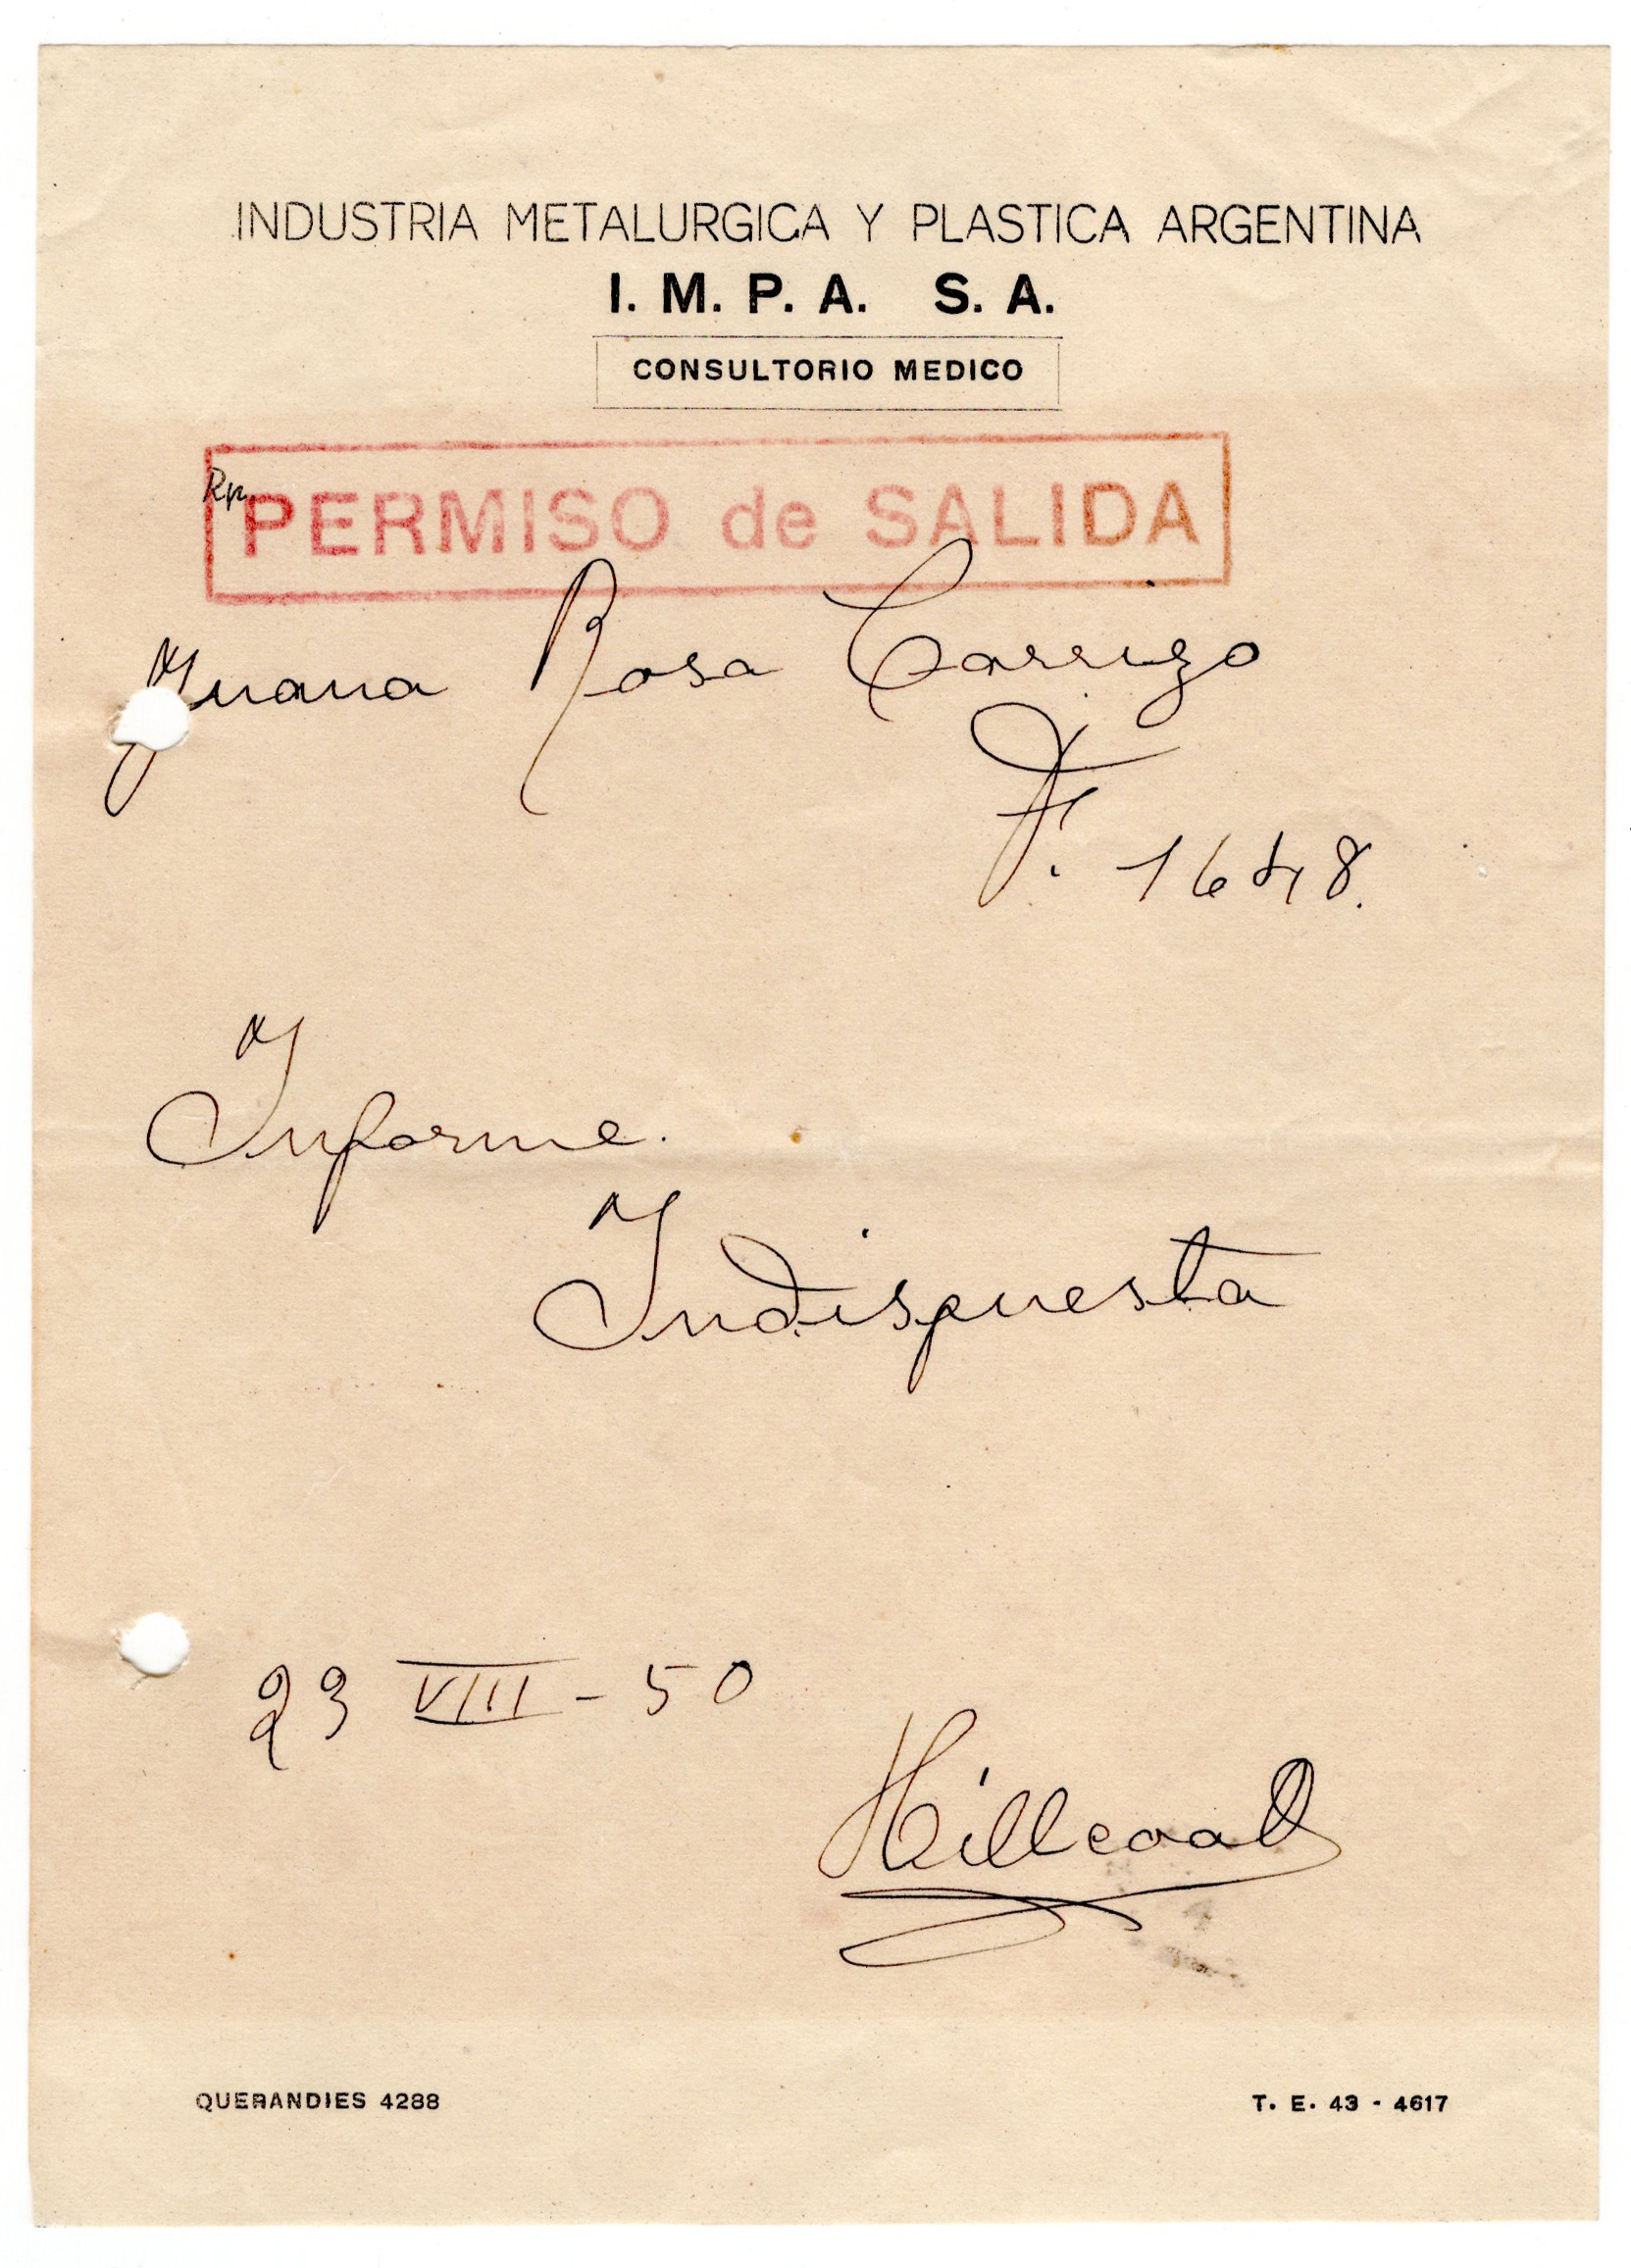 INDUSTRIA METALURGICA Y PLASTICA ARGENTINA
I. M. P. A. S. A.
CONSULTORIO MEDICO
Rp.
PERMISO de SALIDA
Juana Rosa Carrizo
F. 1648.
Informe.
Indispuesta
23 VIII - 50
Hillcoat
QUERANDIES 4288
T. E. 43 - 4617